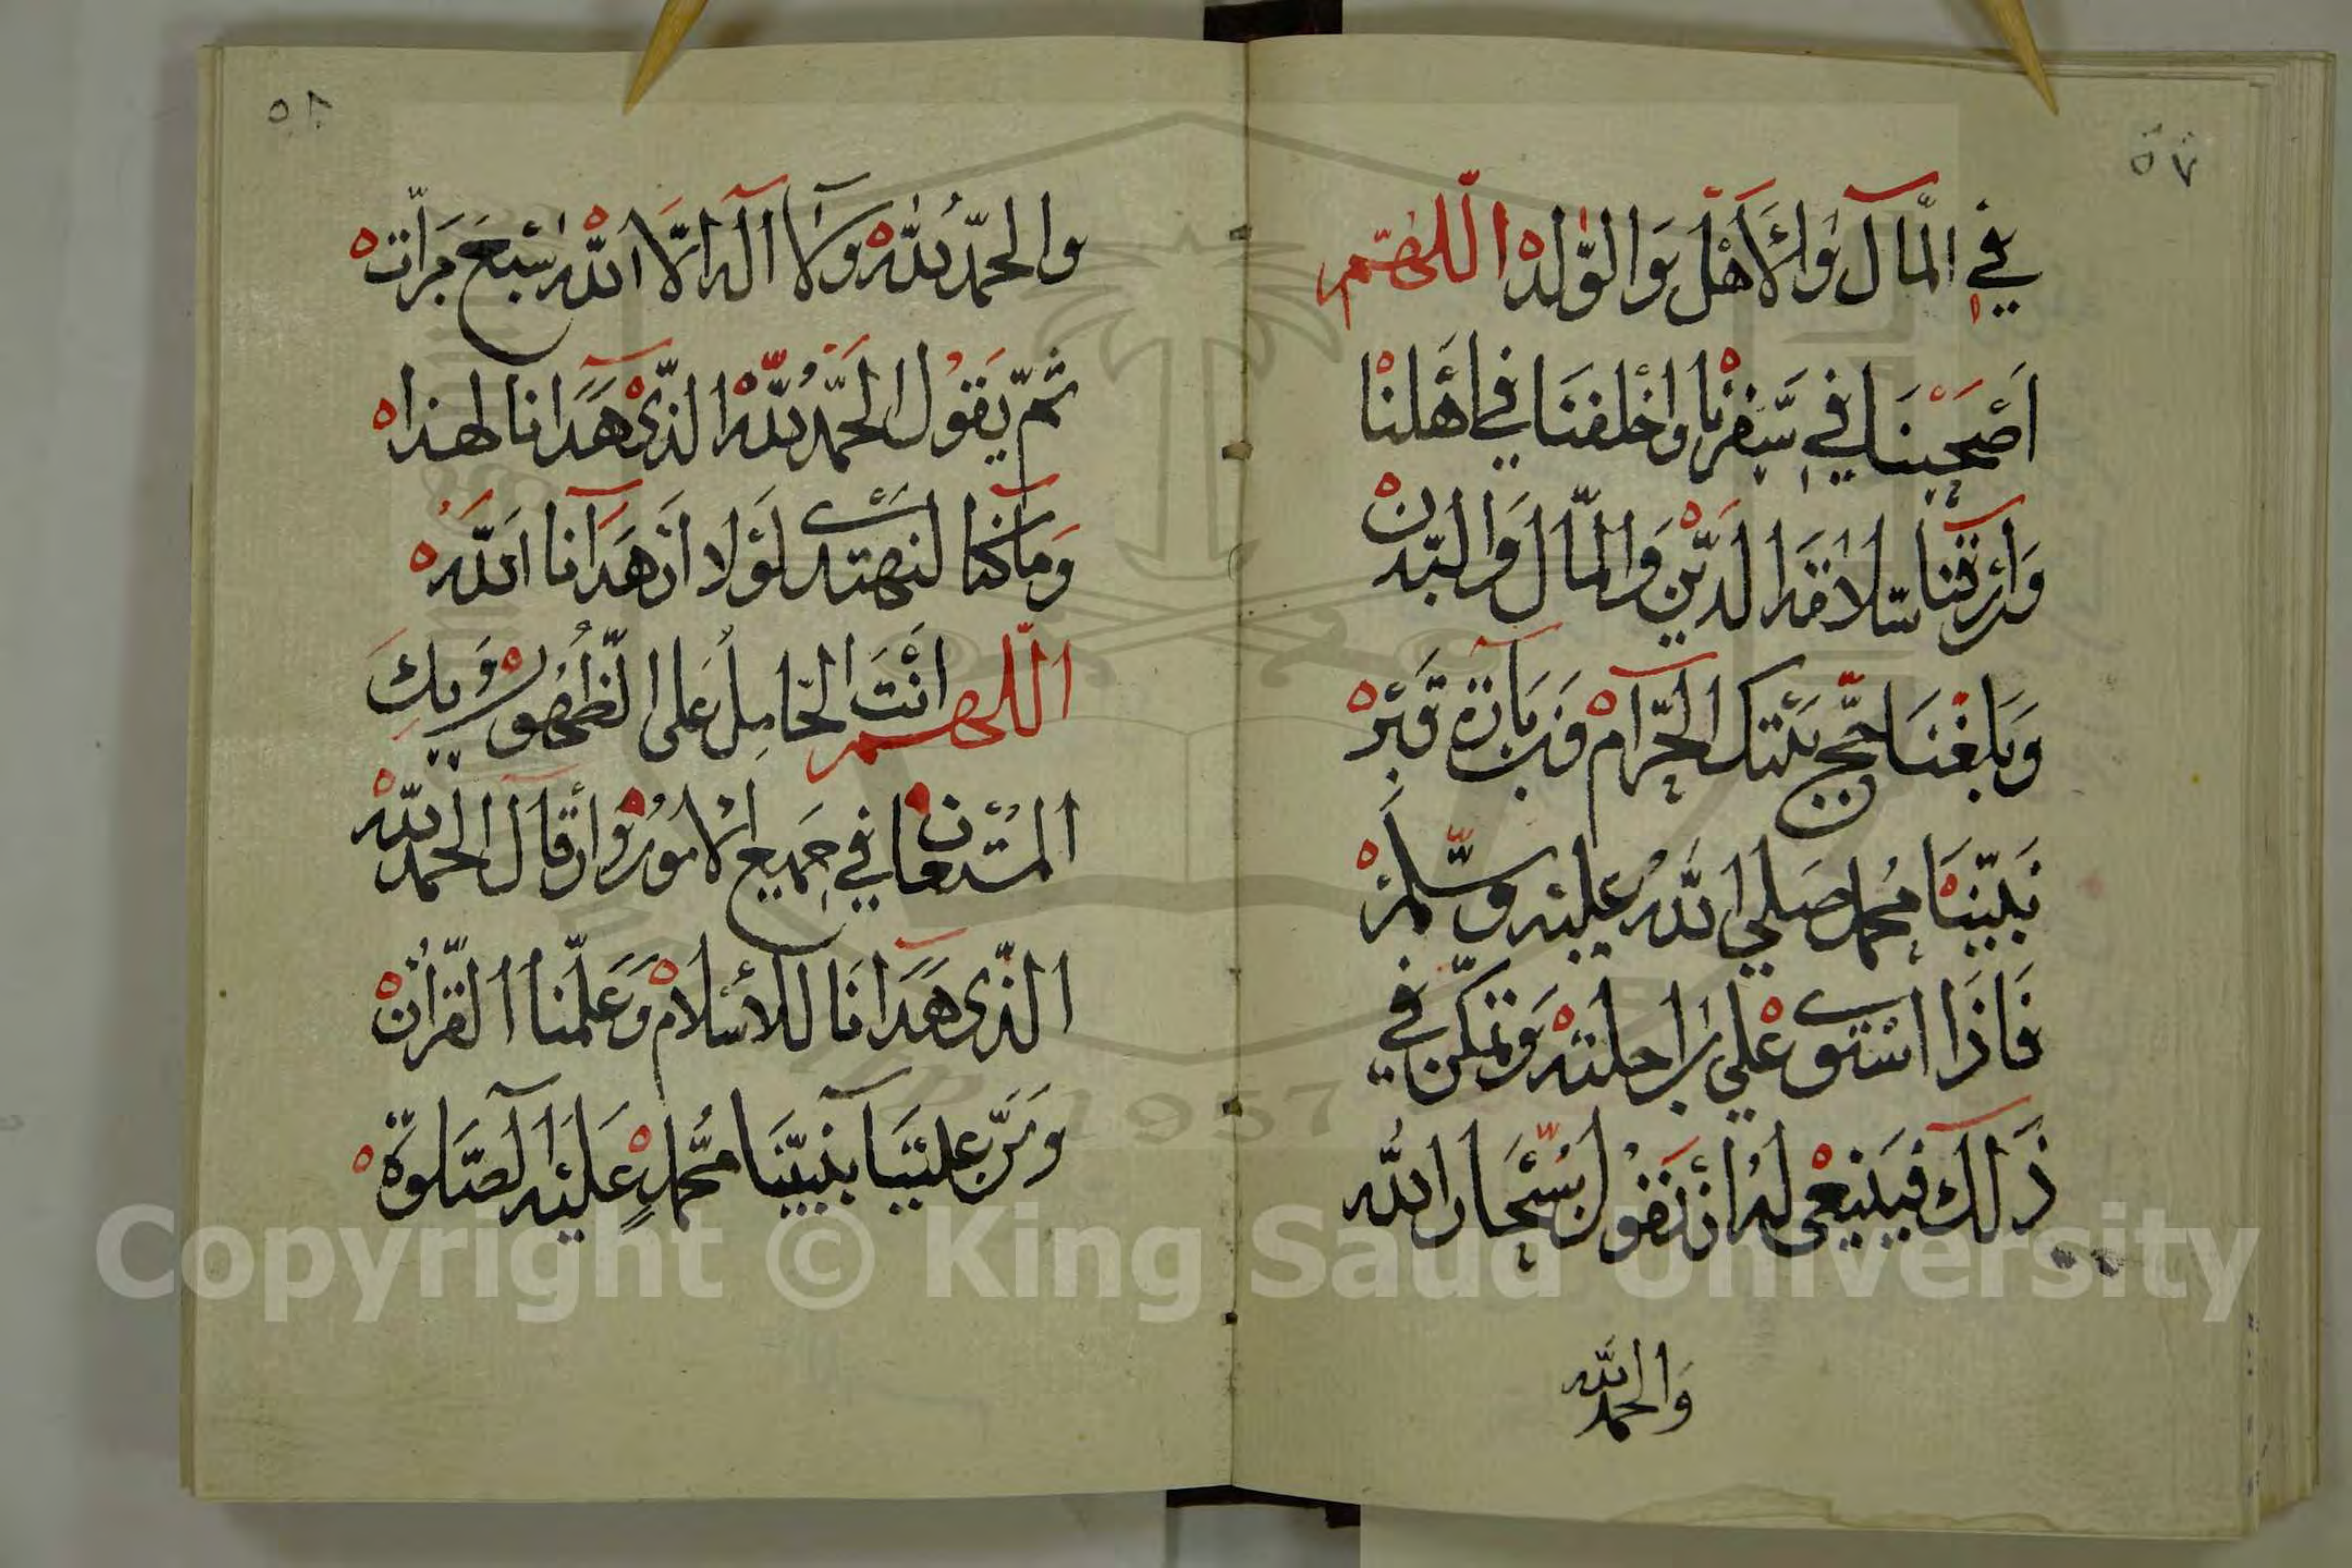 ٥٧
في المال والأهل والولد اللهم
أصحبنا في سفرنا واخلفنا في أهلنا
وارزقنا سلامة الدين والمال والبدن
وبلغنا حج بيتك الحرام وزيارة قبر
نبينا محمد صلي الله عليه وسلم
فاذا استوى علي راحلته وتمكن في
ذالك فينبغى له ان يقول سبحان الله
والحمد لله
٥٨
والحمد لله ولا اله الا الله سبع مرات
ثم يقول الحمد لله الذى هدانا لهذا
وما كنا لنهتدى لولا ان هدانا الله
اللهم انت الحامل على الظهور وبك
المستعان في جميع الامور وان قال الحمد لله
الذى هدانا للاسلام وعلمنا القران
ومن علينا بنبينا محمد عليه الصلوة
Copyright © King Saud University
1957